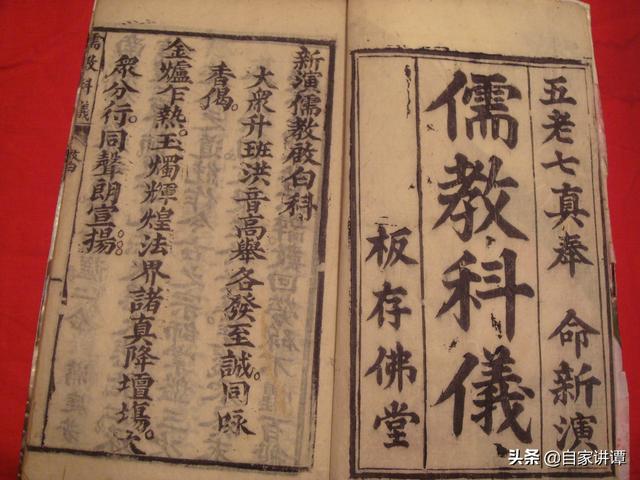 五老七真奉 命新演
儒教科儀
板存佛堂
新演儒教啟白科
大衆升班洪音高舉各發至誠。同咏
香偈。
金爐乍熱。玉燭輝煌法界諸真降壇塲。大
衆分行。同聲朗宣揚。
儒教科儀
头条 @自家讲谭